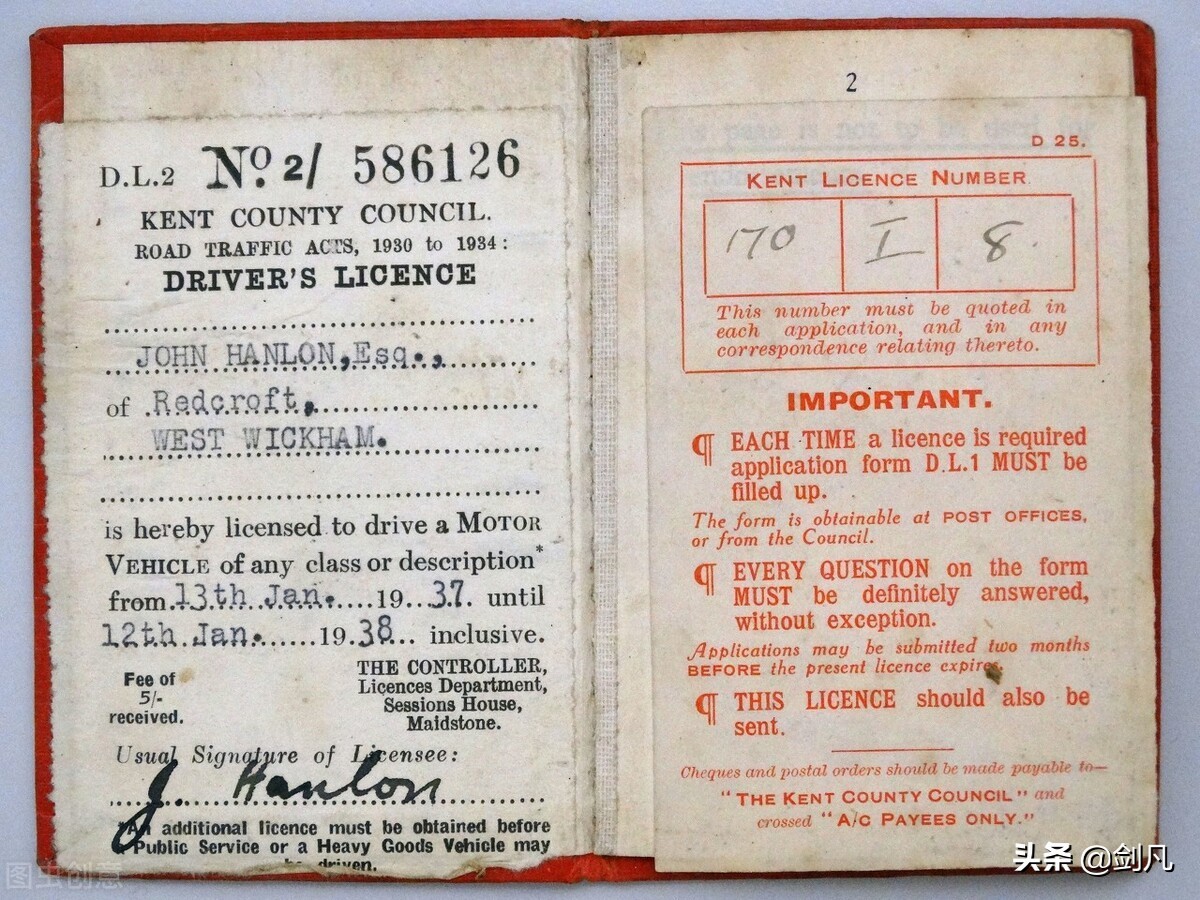 D.L.2 No. 2/ 586126
KENT COUNTY COUNCIL.
ROAD TRAFFIC ACTS, 1930 to 1934:
DRIVER'S LICENCE
JOHN HANLON, Esq.,
of Redcroft,
WEST WICKHAM.
is hereby licensed to drive a MOTOR
VEHICLE of any class or description*
from 13th Jan. 19 37. until
12th Jan. 19 38 inclusive.
Fee of
5/-
received.
THE CONTROLLER,
Licences Department,
Sessions House,
Maidstone.
Usual Signature of Licensee:
J. Hanlon
*An additional licence must be obtained before
a Public Service or a Heavy Goods Vehicle may
be driven.
图虫创意
2
D 25.
KENT LICENCE NUMBER.
170 I 8.
This number must be quoted in
each application, and in any
correspondence relating thereto.
IMPORTANT.
¶ EACH TIME a licence is required
application form D.L.1 MUST be
filled up.
The form is obtainable at POST OFFICES,
or from the Council.
¶ EVERY QUESTION on the form
MUST be definitely answered,
without exception.
Applications may be submitted two months
BEFORE the present licence expires.
¶ THIS LICENCE should also be
sent.
Cheques and postal orders should be made payable to—
"THE KENT COUNTY COUNCIL" and
crossed "A/C PAYEES ONLY."
头条 @剑凡